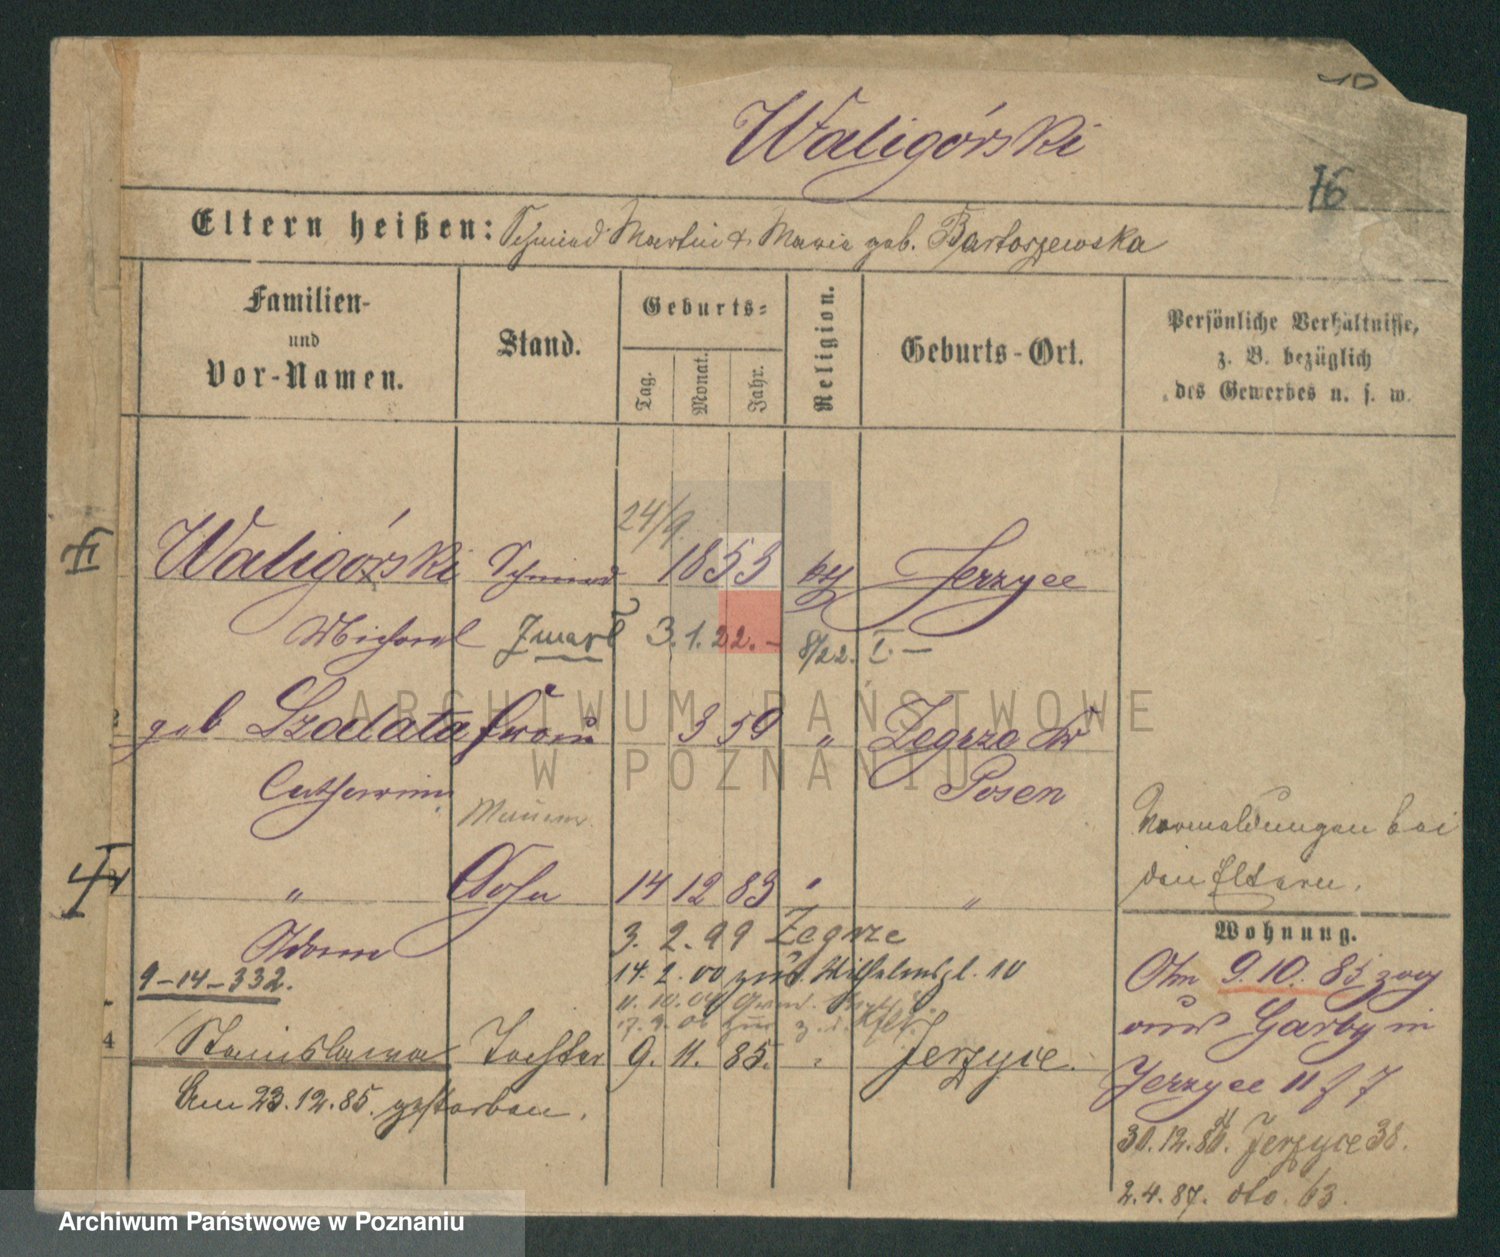 Waligórski
76
Eltern heißen: Schmied Martin & Maria geb. Bartoszewska
Familien-
und
Vor-Namen.
Stand.
Geburts-
Tag.
Monat.
Jahr.
Religion.
Geburts-Ort.
Persönliche Verhältnisse,
z. B. bezüglich
des Gewerbes u. s. w.
24/9
Waligórski Schmied 1853 kth Jerzyce
Michael Zmarł 3.1.22.- 8/22. I.-
geb Szalata Frau 3 59 " Zegrze Kr
Catharina Posen
Vormeldungen bei
den Eltern.
" Sohn 14 12 83 " "
Adam 3. 2. 99 Zegrze
9-14-332. 14. 2. 00 zur. Wilhelmspl. 10
Wohnung.
Am 9.10. 85 zog
aus Garby in
Jerzyce 11 f 7
4
Stanislawa Tochter 9. 11. 85. " Jerzyce.
Am 23.12.85. gestorben.
30.12.86. Jerzyce 38.
2.4.87. dto. 63.
ARCHIWUM PAŃSTWOWE
W POZNANIU
Archiwum Państwowe w Poznaniu